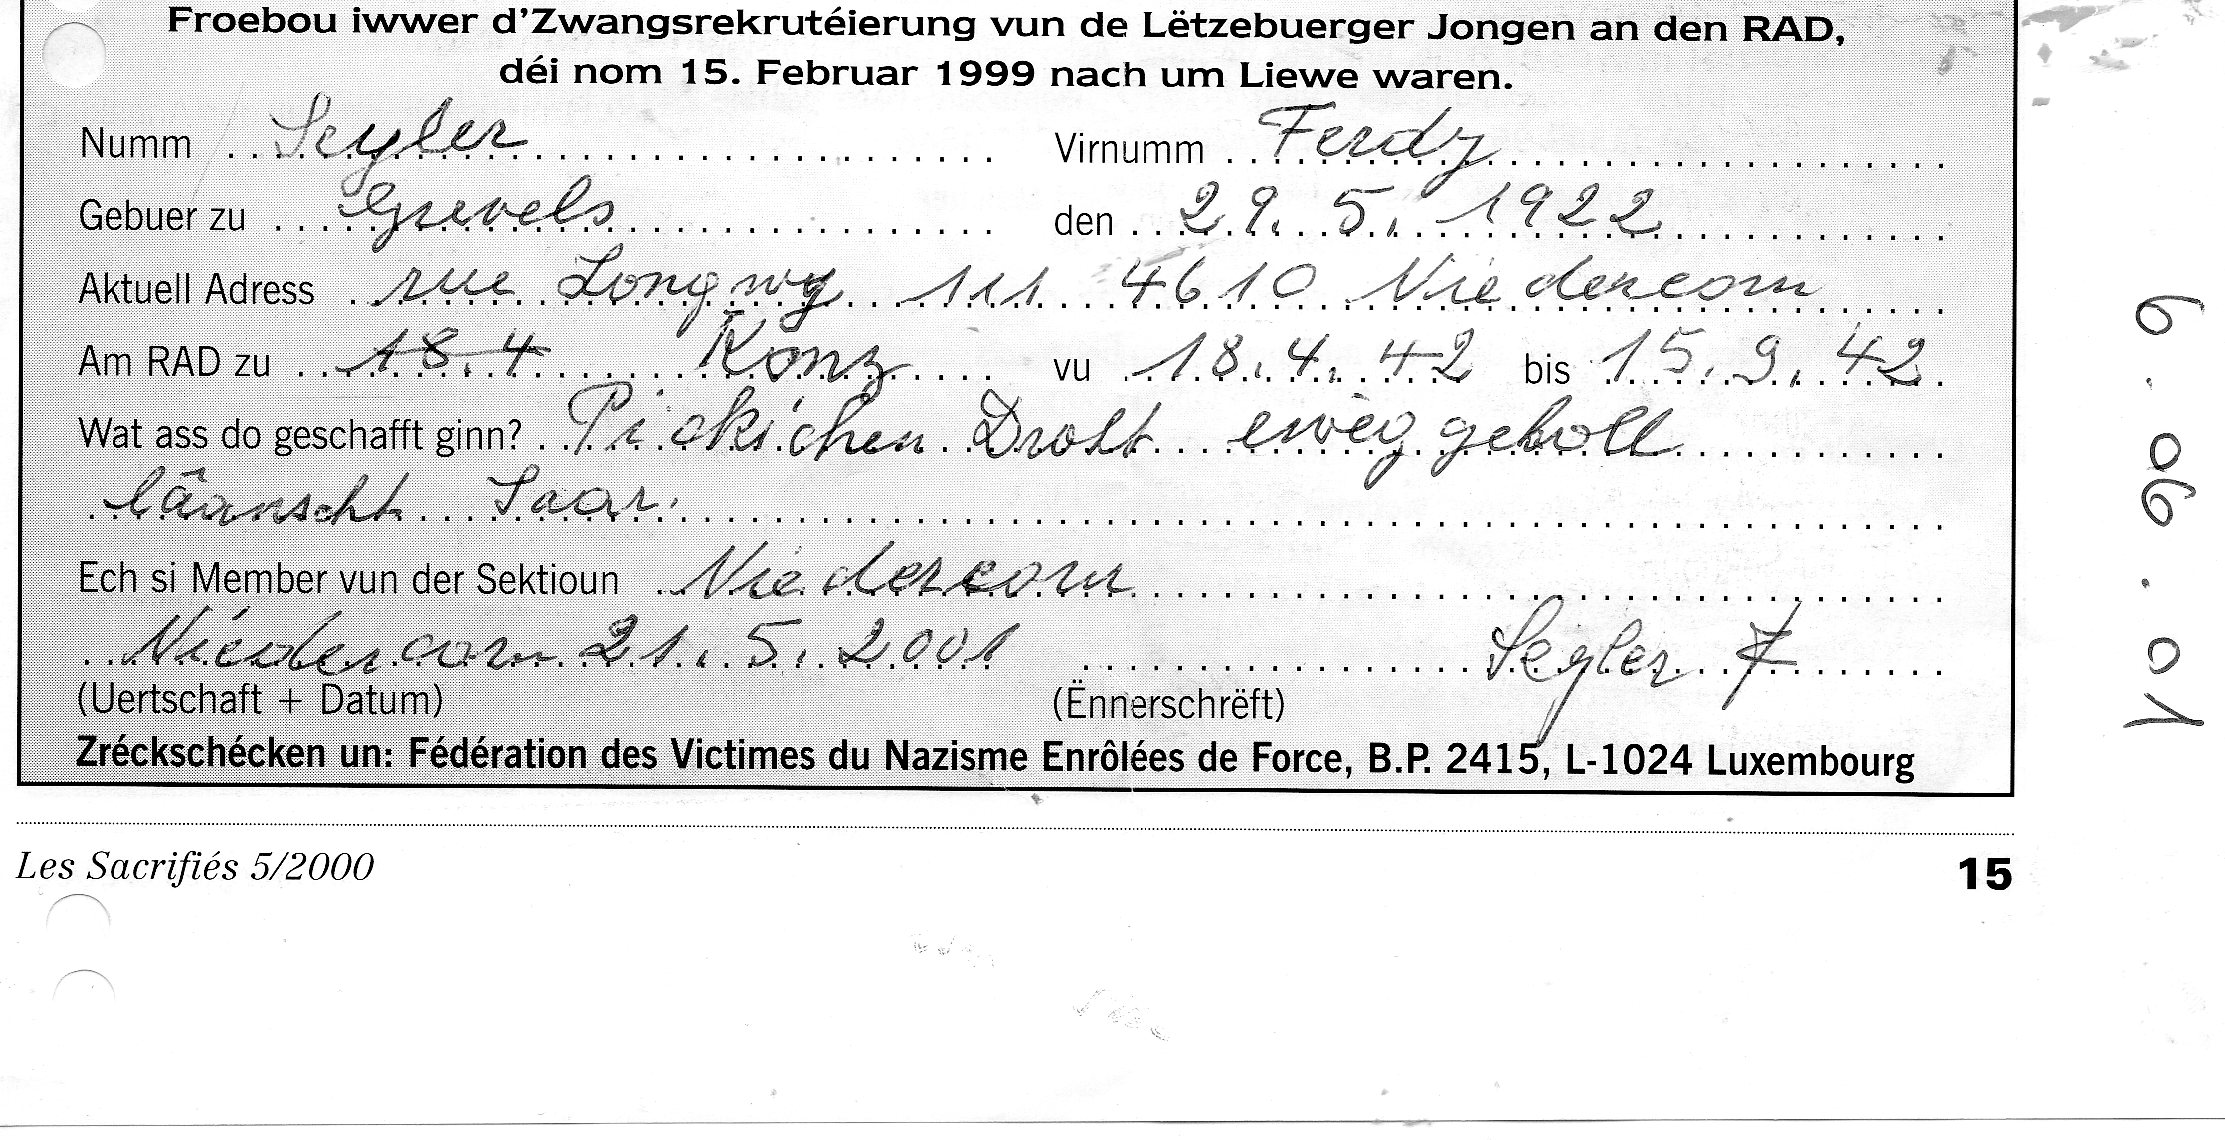 Froebou iwwer d'Zwangsrekrutéierung vun de Lëtzebuerger Jongen an den RAD,
déi nom 15. Februar 1999 nach um Liewe waren.
Numm Segler Virnumm Ferdy
Gebuer zu Grevels den 29. 5. 1922
Aktuell Adress rue Longwy 111 4610 Niedercorn
Am RAD zu 18.4 Konz vu 18. 4. 42 bis 15. 9. 42
Wat ass do geschafft ginn? Drott eweg geholl
läanscht Saar.
Ech si Member vun der Sektioun Niedercorn
Niedercorn 21. 5. 2001 Segler F
(Uertschaft + Datum) (Ënnerschrëft)
Zréckschécken un: Fédération des Victimes du Nazisme Enrôlées de Force, B.P. 2415, L-1024 Luxembourg
Les Sacrifiés 5/2000 15
6. 06. 01